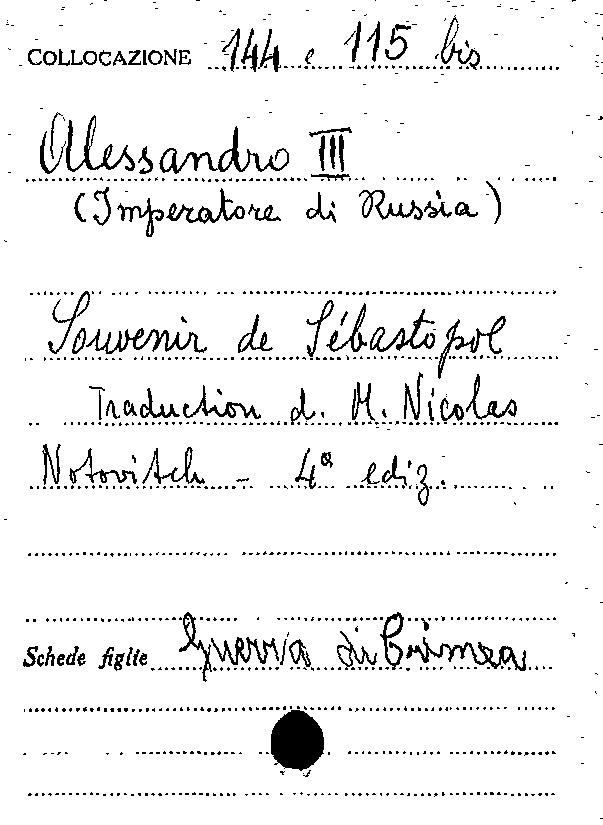 COLLOCAZIONE 144 e 115 bis
Alessandro III
(Imperatore di Russia)
Souvenir de Sébastopol
Traduction d. M. Nicolas
Notovitch - 4ª ediz.
Schede figlie Guerra di Crimea